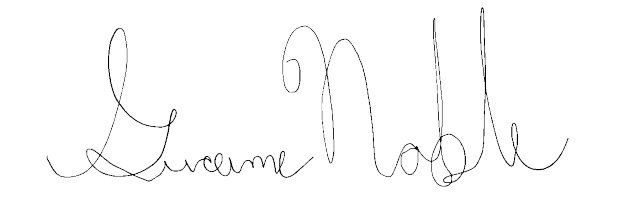 Graeme Noble